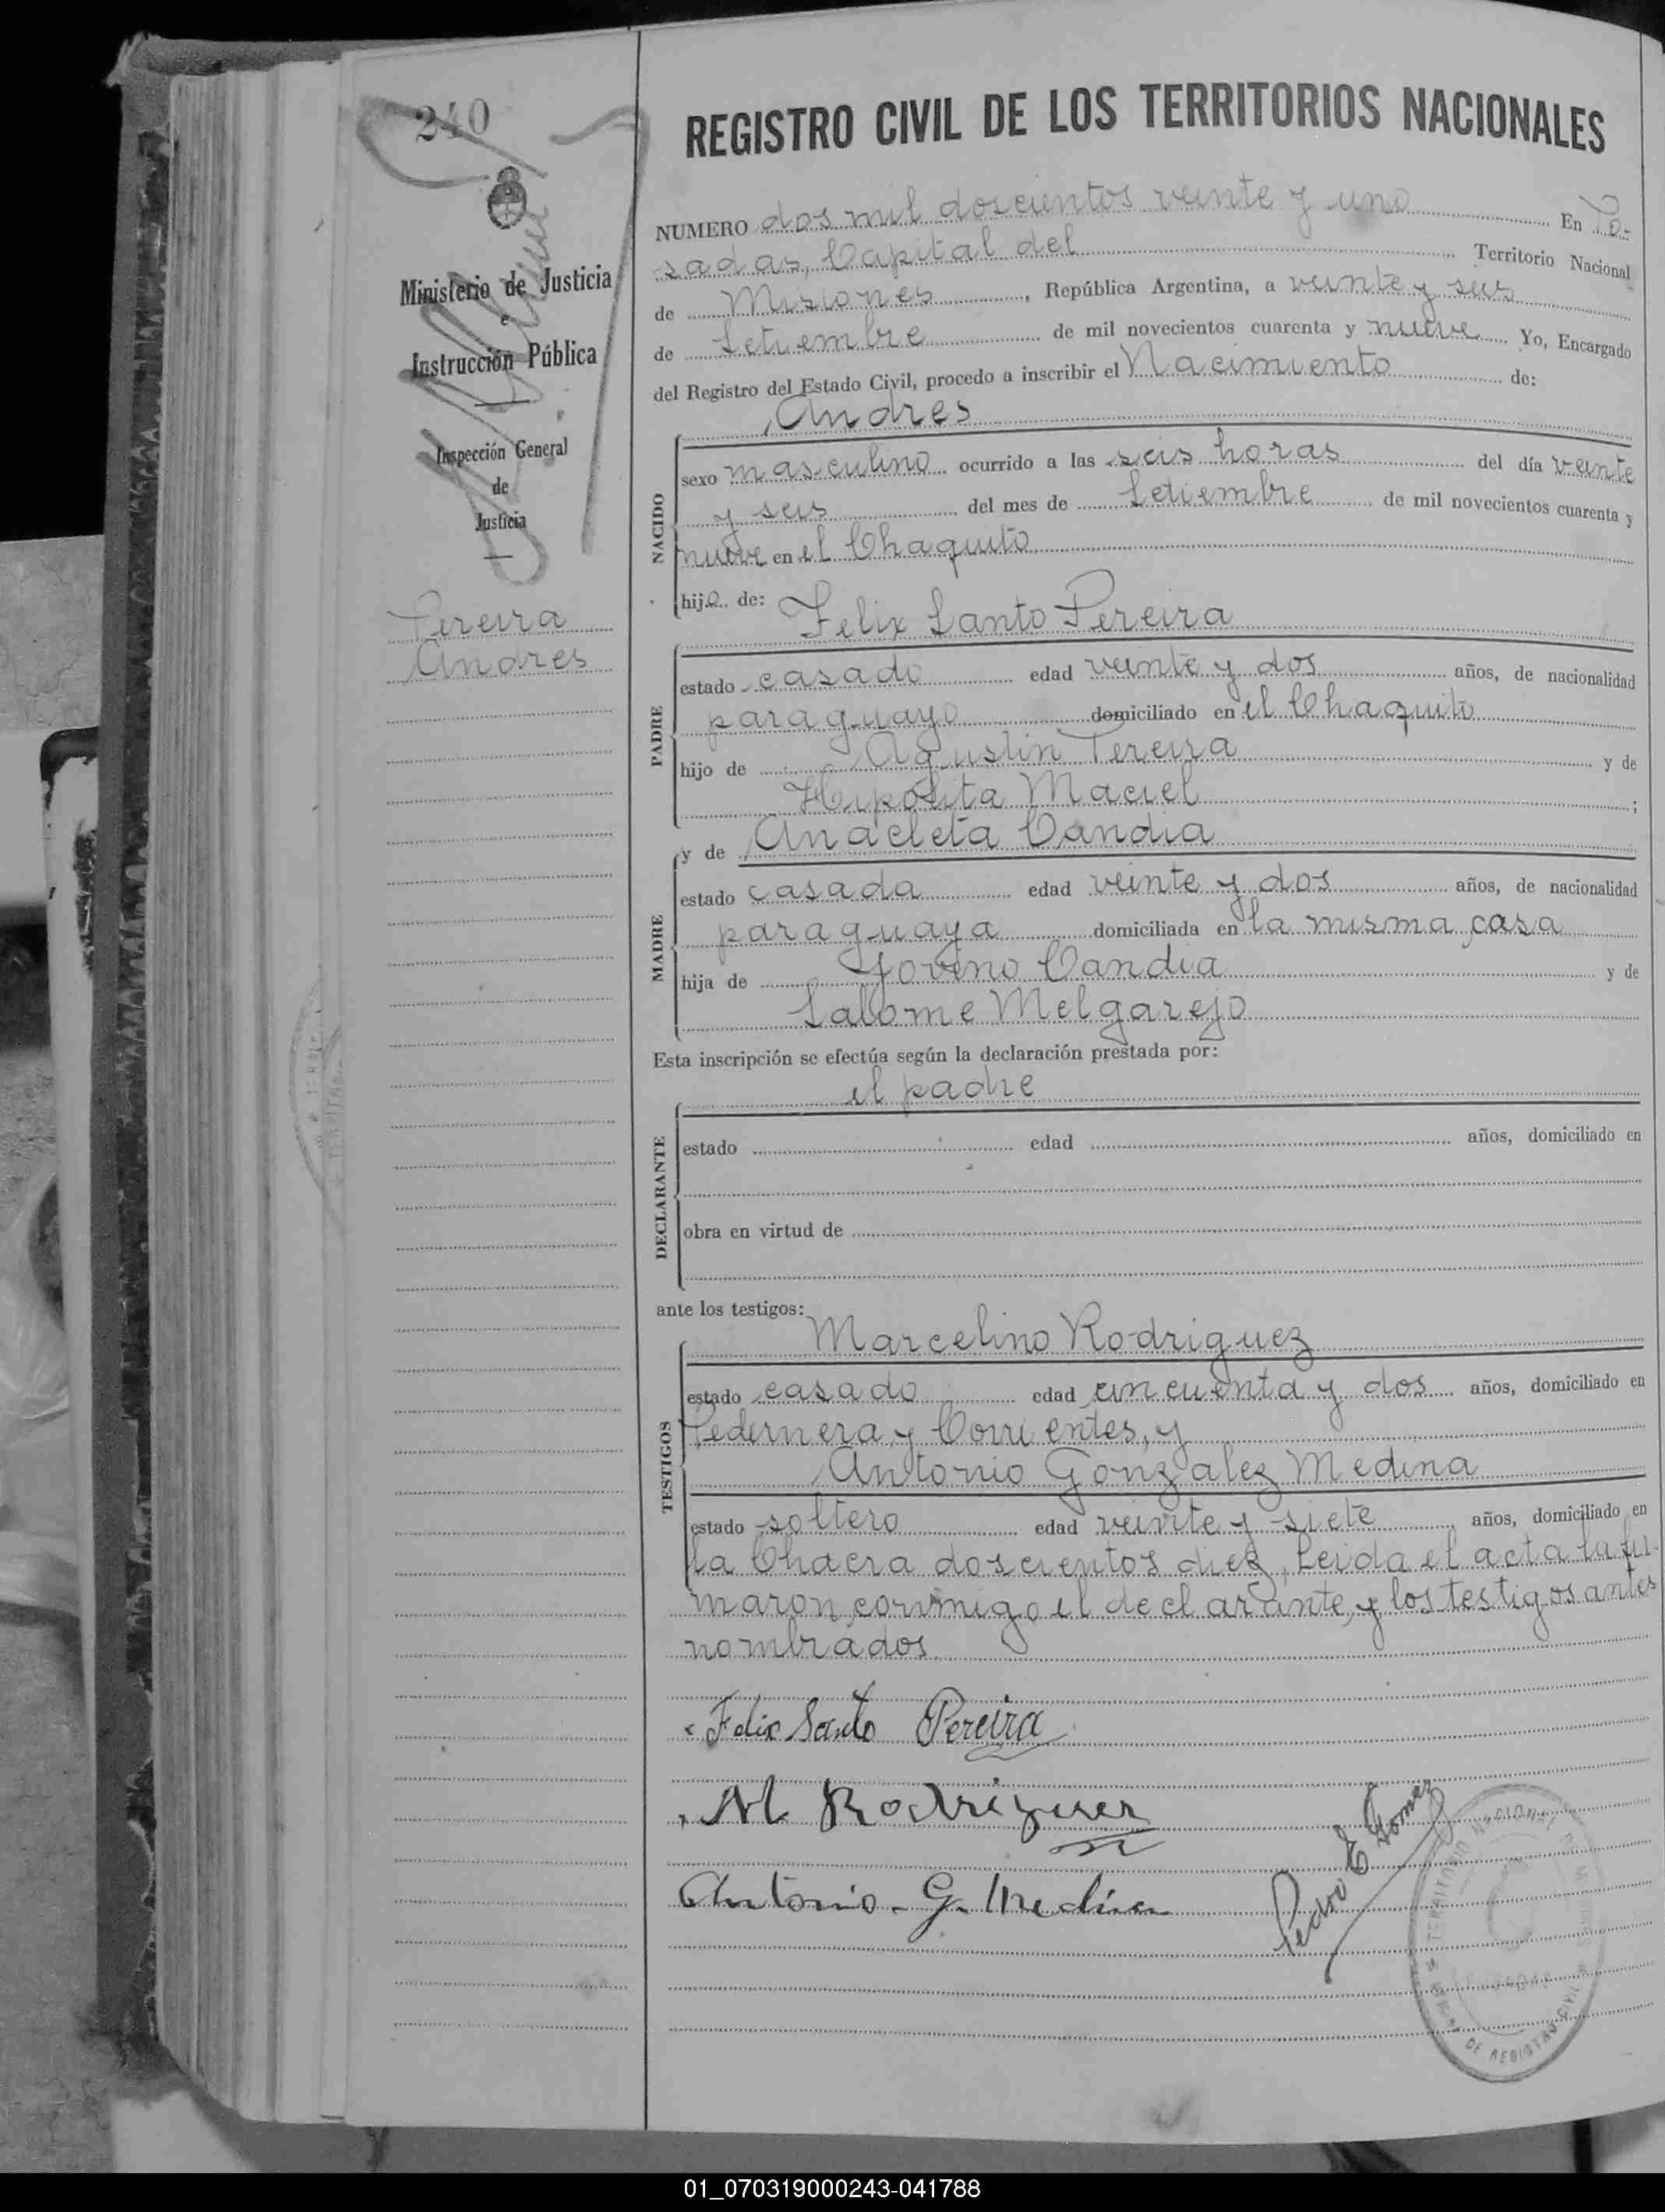 240
Ministerio de Justicia
e
Instrucción Pública
Inspección General
de
Justicia
Pereira
Andres
REGISTRO CIVIL DE LOS TERRITORIOS NACIONALES
NUMERO dos mil doscientos veinte y uno En Po-
sadas, Capital del Territorio Nacional
de Misiones, República Argentina, a veinte y seis
de Setiembre de mil novecientos cuarenta y nueve Yo, Encargado
del Registro del Estado Civil, procedo a inscribir el Nacimiento de:
Andres
NACIDO
sexo masculino ocurrido a las seis horas del día veinte
y seis del mes de Setiembre de mil novecientos cuarenta y
nueve en el Chaquito
hijo de: Felix Santo Pereira
PADRE
estado casado edad veinte y dos años, de nacionalidad
paraguayo domiciliado en el Chaquito
hijo de Agustin Pereira y de
Hipolita Maciel;
y de Anacleta Candia
MADRE
estado casada edad veinte y dos años, de nacionalidad
paraguaya domiciliada en la misma casa
hija de Jovino Candia y de
Salome Melgarejo
Esta inscripción se efectúa según la declaración prestada por:
el padre
DECLARANTE
estado edad años, domiciliado en
obra en virtud de
ante los testigos: Marcelino Rodriguez
TESTIGOS
estado casado edad cincuenta y dos años, domiciliado en
Pedernera y Corrientes, y
Antonio Gonzalez Medina
estado soltero edad veinte y siete años, domiciliado en
la Chacra doscientos diez, Leida el acta la fir-
maron conmigo el declarante, y los testigos antes
nombrados.
Felix Santo Pereira
M. Rodriguez
Antonio G. Medina
Pedro E Gomez
TERRITORIO NACIONAL
DE REGISTRO CIVIL
01_070319000243-041788